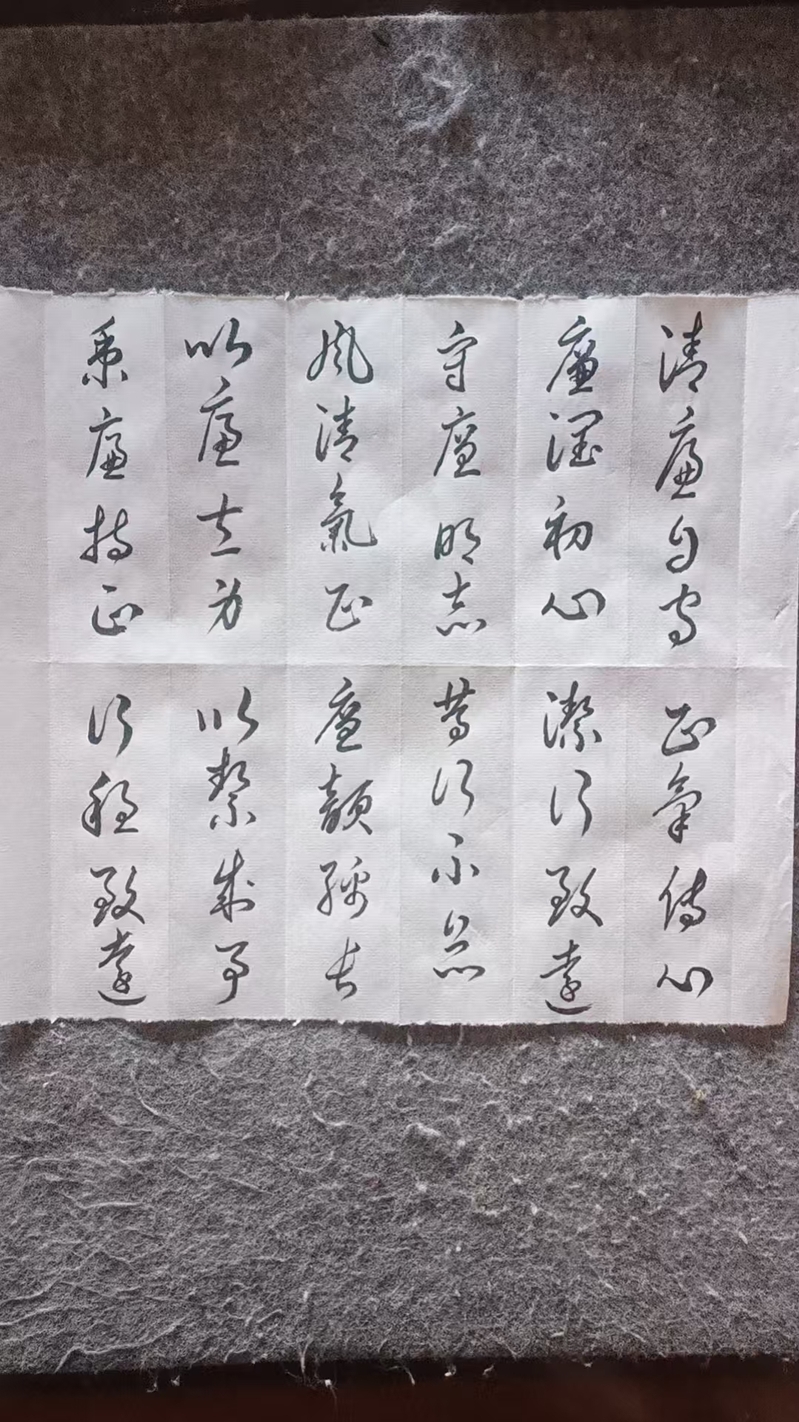 清廉自守 正氣傳心
廉潤初心 潔行致遠
守廉明志 篤行不怠
風清氣正 廉韻綿長
以廉立身 以絜成事
秉廉持正 行穩致遠